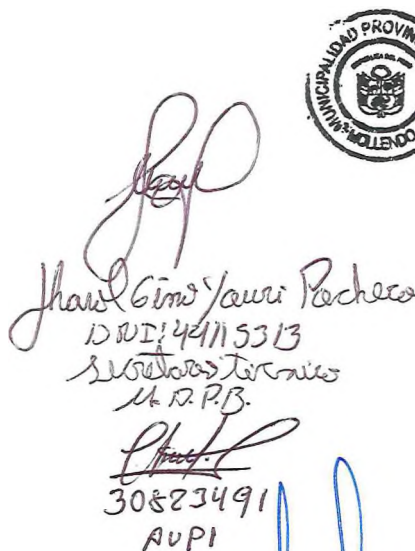 MUNICIPALIDAD PROVIN
MOLLENDO
Jharol Gino Yauri Pacheco
DNI: 44115313
Secretario técnico
M.D.P.B.
30823491
AUPI